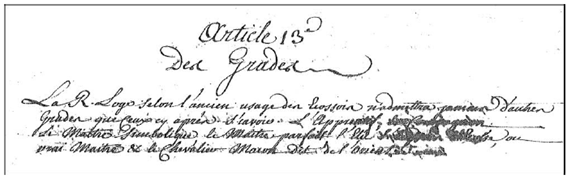 Article 13e
Des Grades
La R. Loge selon l'ancien usage des Ecossois n'admettra jamais d'autres
Grades que ceux cy après sçavoir. L'Apprentif
le Maître Simbolique le Maître parfait l'Elû ou
vrai Maître & le Chevalier Macon dit de l'Orient